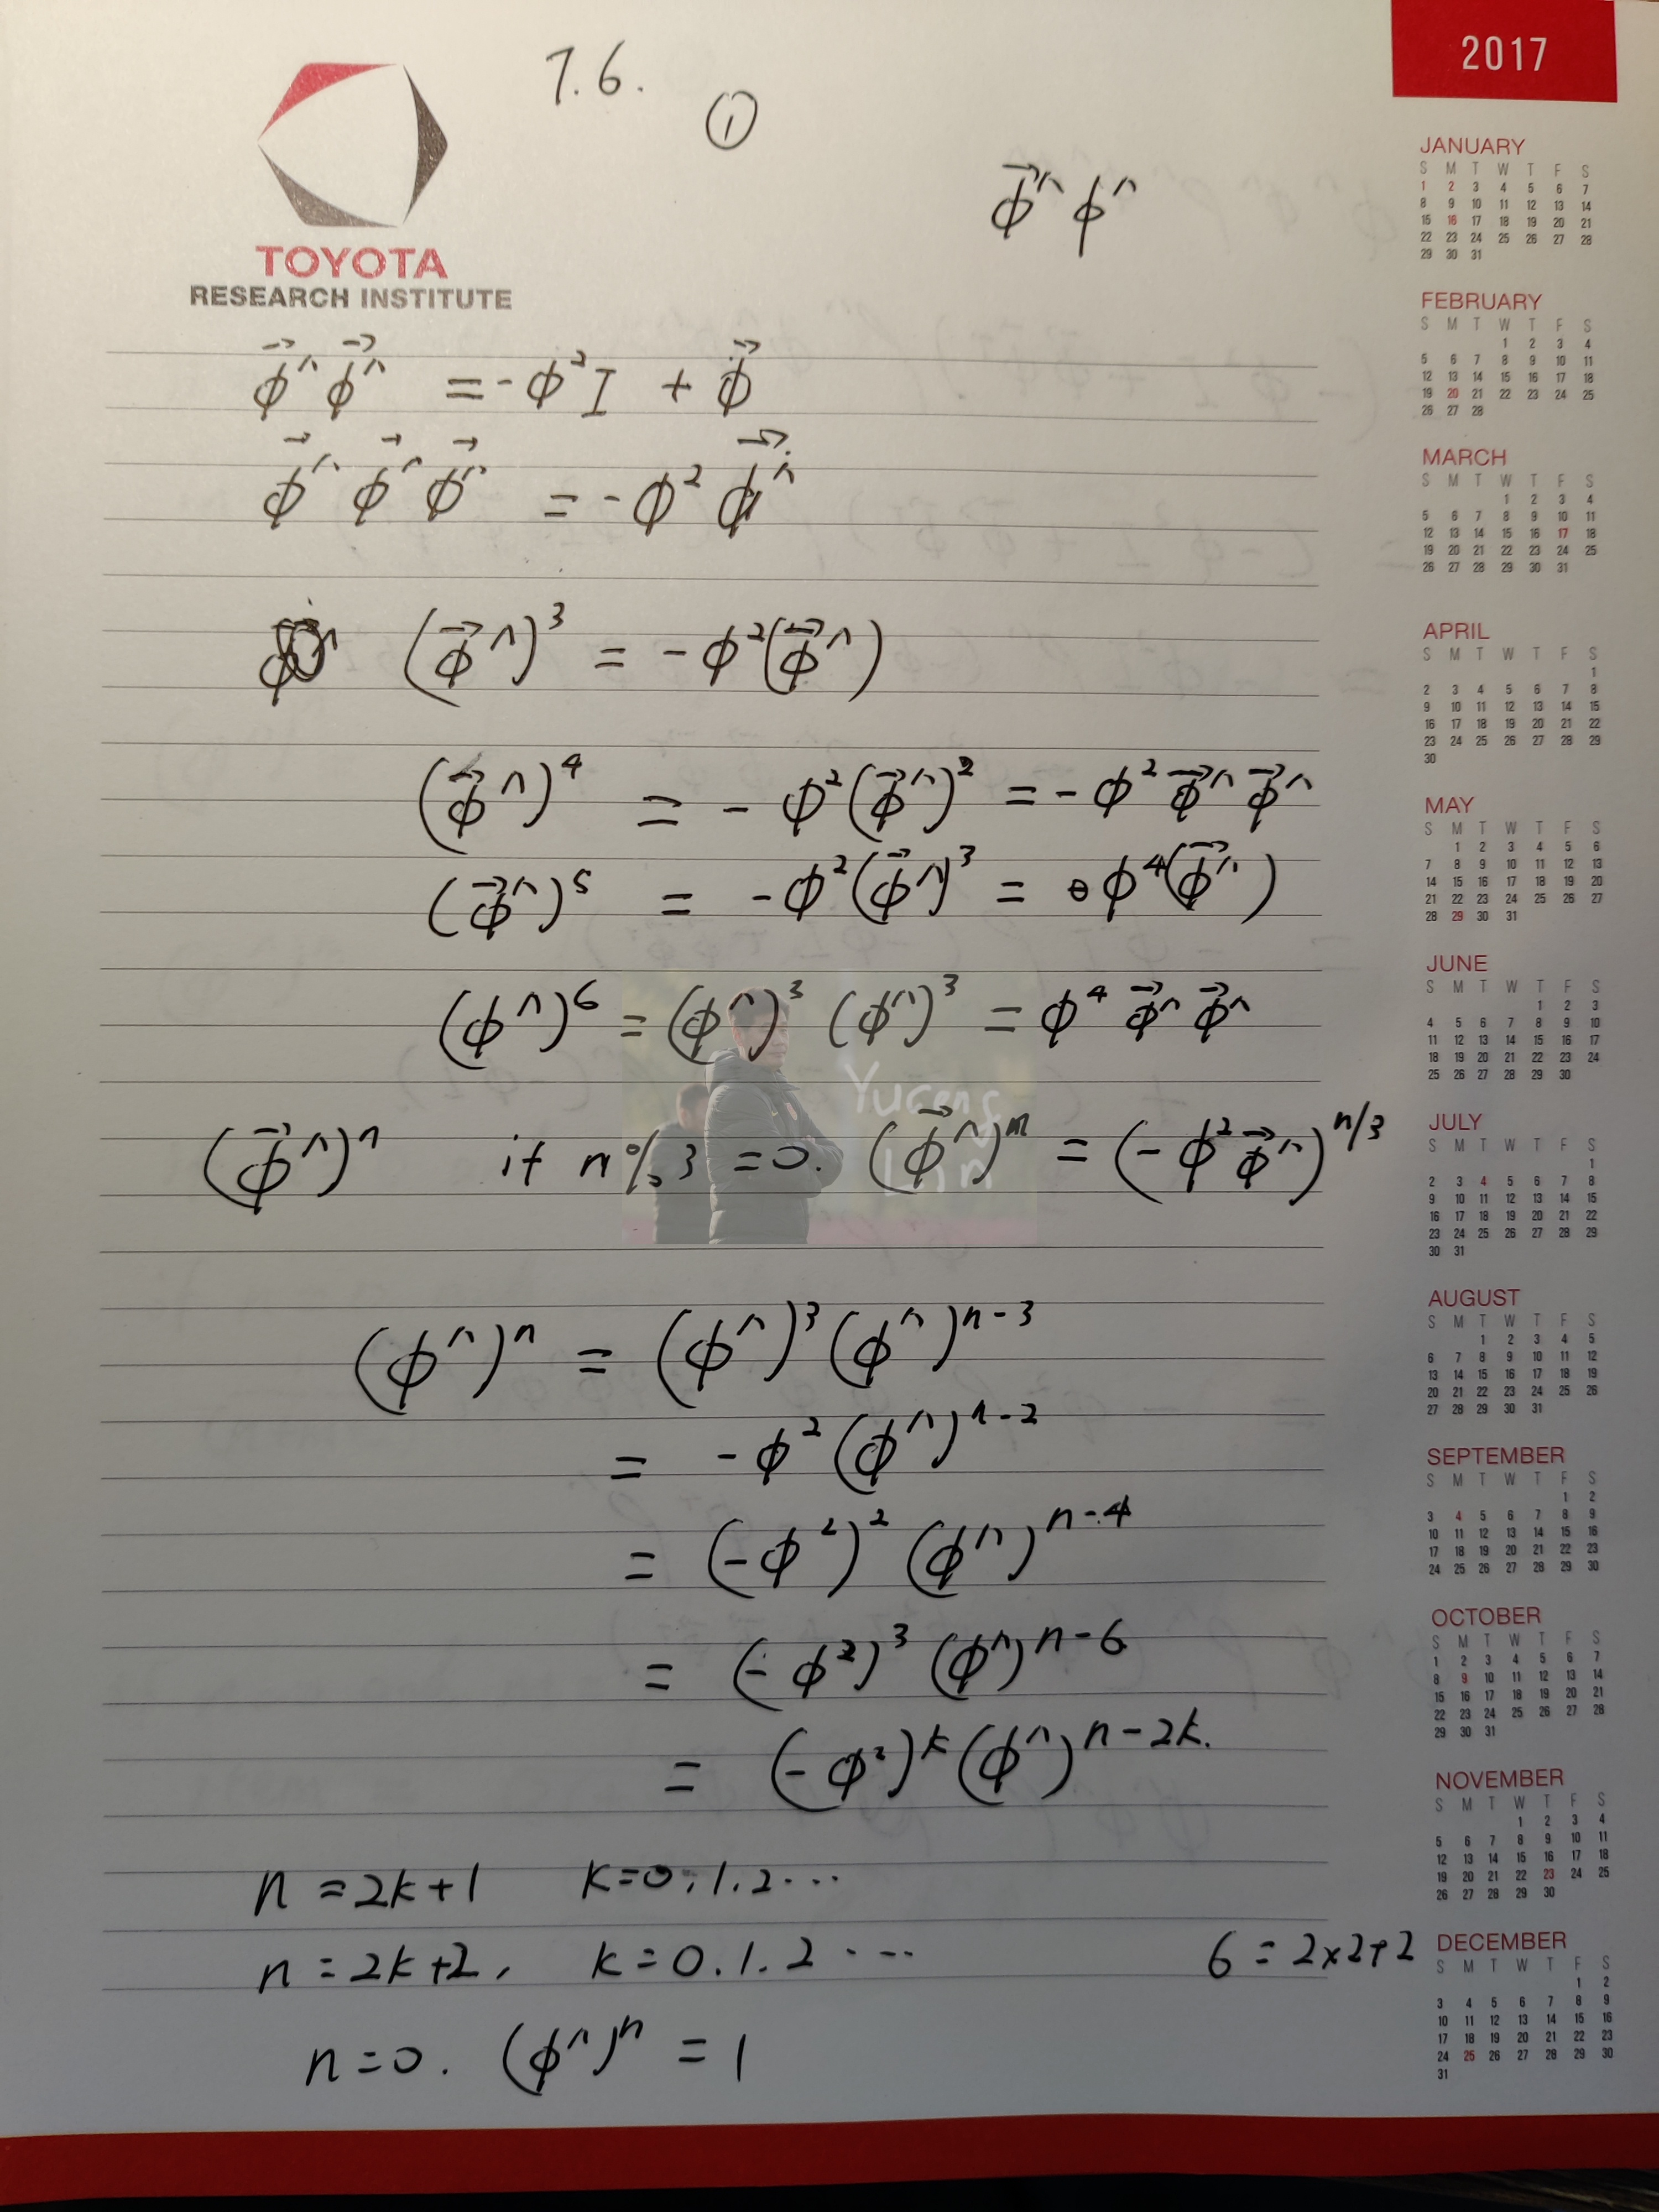 2017
7.6.
①
TOYOTA
RESEARCH INSTITUTE
φ⃗^ φ^
φ⃗^ φ⃗^ = -φ² I + φ⃗
φ⃗^ φ⃗^ φ⃗^ = -φ² φ⃗^
(φ⃗^)³ = -φ²(φ⃗^)
(φ⃗^)⁴ = -φ²(φ⃗^)² = -φ² φ⃗^ φ⃗^
(φ⃗^)⁵ = -φ²(φ⃗^)³ = φ⁴(φ⃗^)
(φ^)⁶ = (φ^)³ (φ^)³ = φ⁴ φ⃗^ φ⃗^
Yuceng
Lin
(φ⃗^)ⁿ if n%3 = 0. (φ⃗^)ⁿ = (-φ² φ⃗^)^{n/3}
(φ^)ⁿ = (φ^)³ (φ^)^{n-3}
= -φ² (φ^)^{n-2}
= (-φ²)² (φ^)^{n-4}
= (-φ²)³ (φ^)^{n-6}
= (-φ²)^k (φ^)^{n-2k}.
n = 2k+1 k=0,1.2...
n = 2k+2, k=0.1.2...
6 = 2×2+2
n=0. (φ^)ⁿ = 1
JANUARY
S M T W T F S
1 2 3 4 5 6 7
8 9 10 11 12 13 14
15 16 17 18 19 20 21
22 23 24 25 26 27 28
29 30 31
FEBRUARY
S M T W T F S
1 2 3 4
5 6 7 8 9 10 11
12 13 14 15 16 17 18
19 20 21 22 23 24 25
26 27 28
MARCH
S M T W T F S
1 2 3 4
5 6 7 8 9 10 11
12 13 14 15 16 17 18
19 20 21 22 23 24 25
26 27 28 29 30 31
APRIL
S M T W T F S
1
2 3 4 5 6 7 8
9 10 11 12 13 14 15
16 17 18 19 20 21 22
23 24 25 26 27 28 29
30
MAY
S M T W T F S
1 2 3 4 5 6
7 8 9 10 11 12 13
14 15 16 17 18 19 20
21 22 23 24 25 26 27
28 29 30 31
JUNE
S M T W T F S
1 2 3
4 5 6 7 8 9 10
11 12 13 14 15 16 17
18 19 20 21 22 23 24
25 26 27 28 29 30
JULY
S M T W T F S
1
2 3 4 5 6 7 8
9 10 11 12 13 14 15
16 17 18 19 20 21 22
23 24 25 26 27 28 29
30 31
AUGUST
S M T W T F S
1 2 3 4 5
6 7 8 9 10 11 12
13 14 15 16 17 18 19
20 21 22 23 24 25 26
27 28 29 30 31
SEPTEMBER
S M T W T F S
1 2
3 4 5 6 7 8 9
10 11 12 13 14 15 16
17 18 19 20 21 22 23
24 25 26 27 28 29 30
OCTOBER
S M T W T F S
1 2 3 4 5 6 7
8 9 10 11 12 13 14
15 16 17 18 19 20 21
22 23 24 25 26 27 28
29 30 31
NOVEMBER
S M T W T F S
1 2 3 4
5 6 7 8 9 10 11
12 13 14 15 16 17 18
19 20 21 22 23 24 25
26 27 28 29 30
DECEMBER
S M T W T F S
1 2
3 4 5 6 7 8 9
10 11 12 13 14 15 16
17 18 19 20 21 22 23
24 25 26 27 28 29 30
31